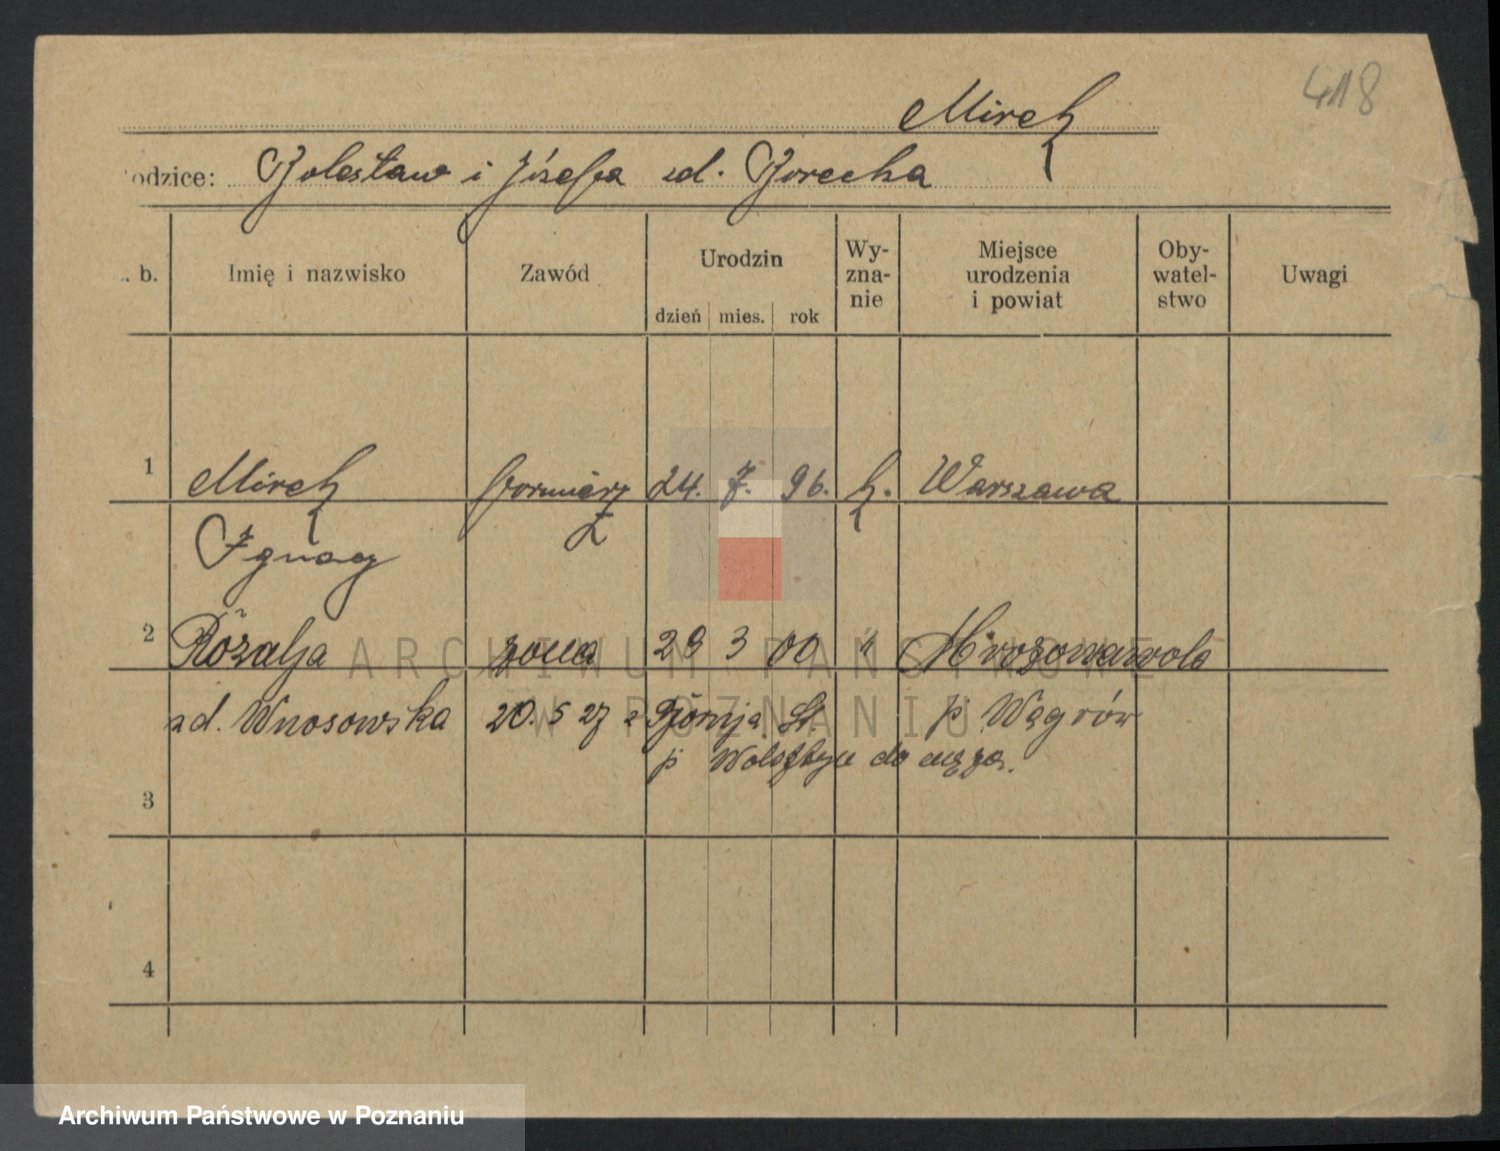 418
Mirek
odzice: Bolesław i Józefa zd. Borecka
. b. Imię i nazwisko Zawód Urodzin dzień mies. rok Wy-zna-nie Miejsce urodzenia i powiat Oby-watel-stwo Uwagi
1 Mirek formierz 24. 7. 96. k. Warszawa
Ignacy
2 Rozalja żona 29 3 00 " Mrozowawola
zd. Wnosowska 20. 5 27 z St. p. Węgrów
p. Wolsztyn do męża.
3
4
ARCHIWUM PAŃSTWOWE
W POZNANIU
Archiwum Państwowe w Poznaniu